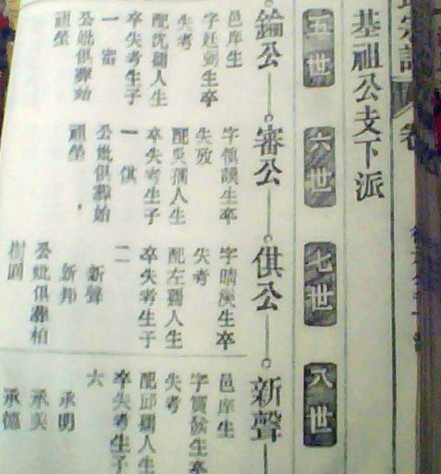 宗譜
卷
基祖公支下派
五世
六世
七世
八世
錀公
審公
供公
新聲
邑庠生
字廷生卒
失考
配沈孺人生
卒失考生子
一 審
公妣俱葬始
祖塋
字慎謨生卒
失攷
配吳孺人生
卒失考生子
一 供
公妣俱葬始
祖塋
字晴溪生卒
失考
配左孺人生
卒失考生子
二
新聲
新邦
公妣俱葬柏
樹園
邑庠生
字實生卒
失考
配邱孺人生
卒失考生子
六
承明
承美
承德